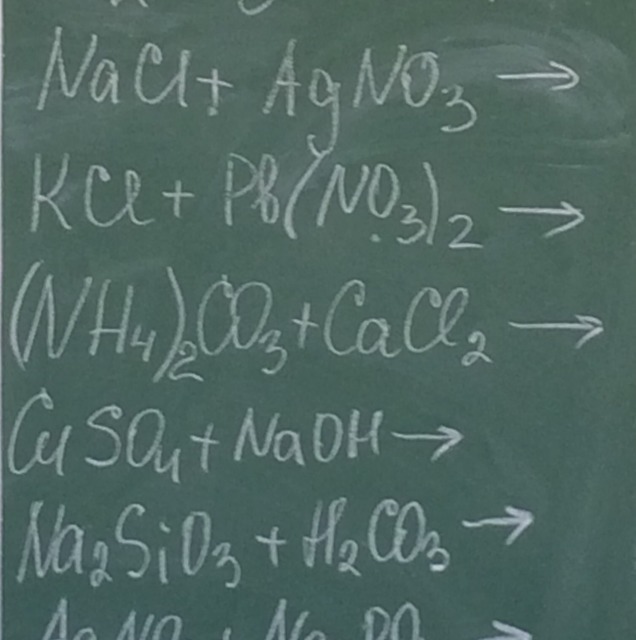 NaCl + AgNO₃ →
KCl + Pb(NO₃)₂ →
(NH₄)₂CO₃ + CaCl₂ →
CuSO₄ + NaOH →
Na₂SiO₃ + H₂CO₃ →